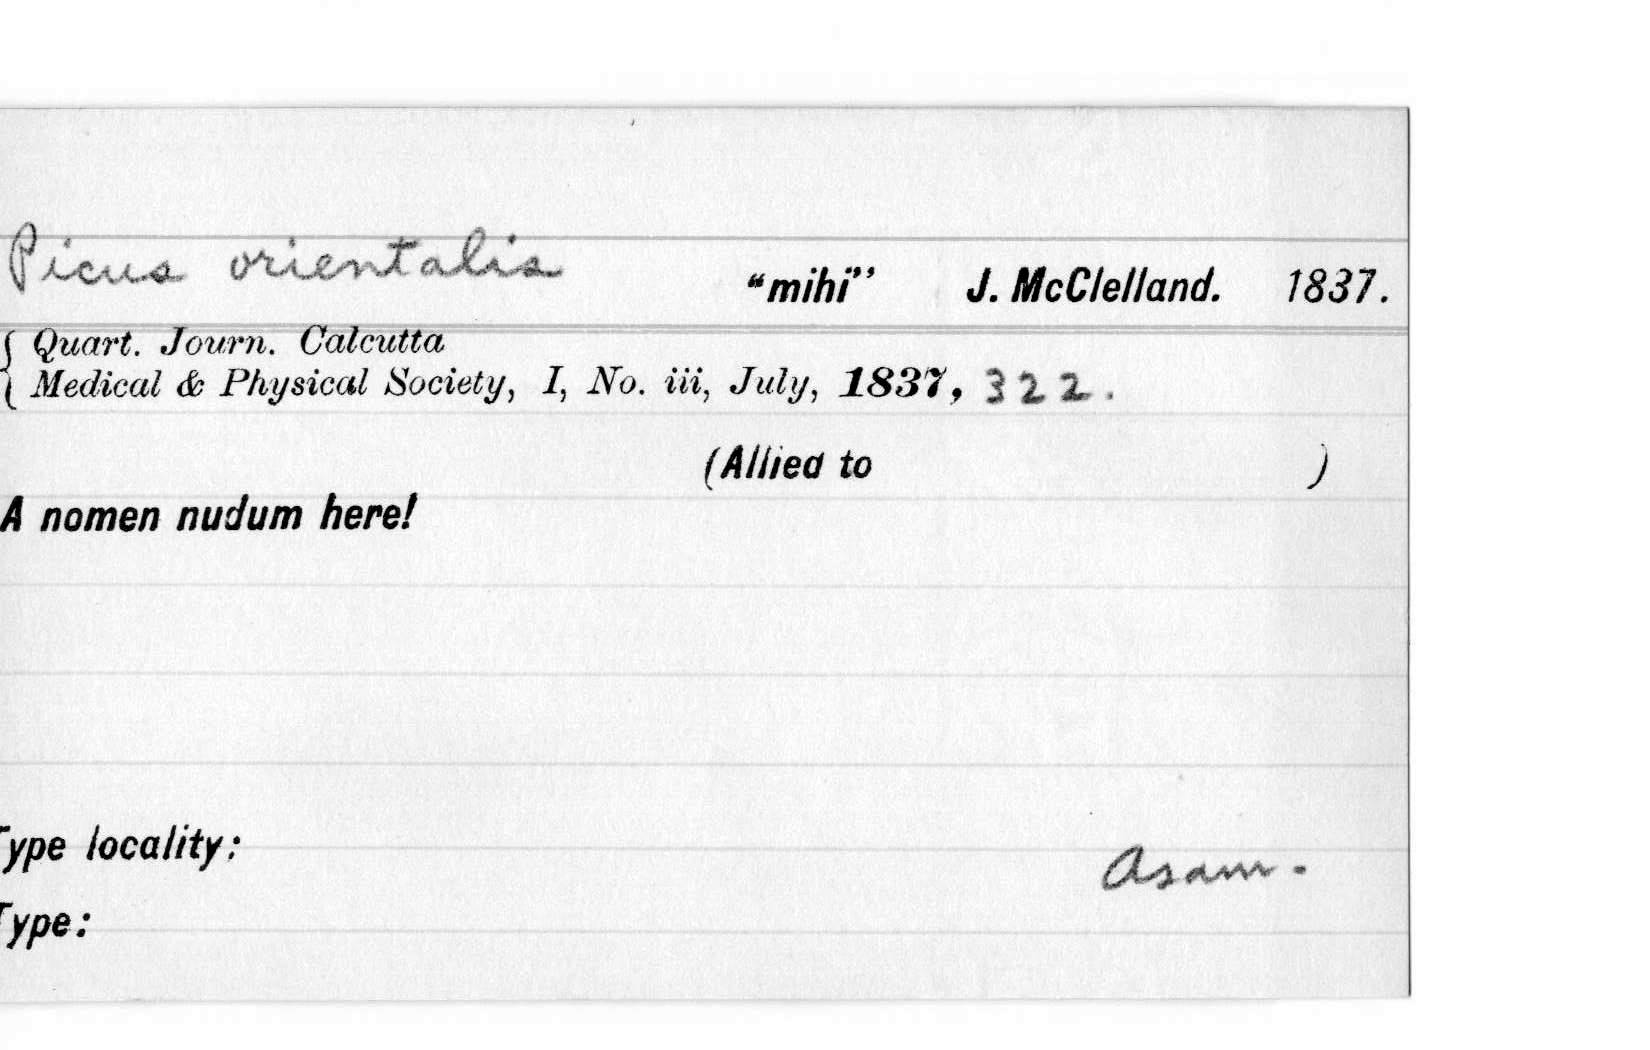 Picus orientalis
"mihi" J. McClelland. 1837.
Quart. Journ. Calcutta
Medical & Physical Society, I, No. iii, July, 1837, 322.
(Allied to )
A nomen nudum here!
Type locality:
Asam.
Type: